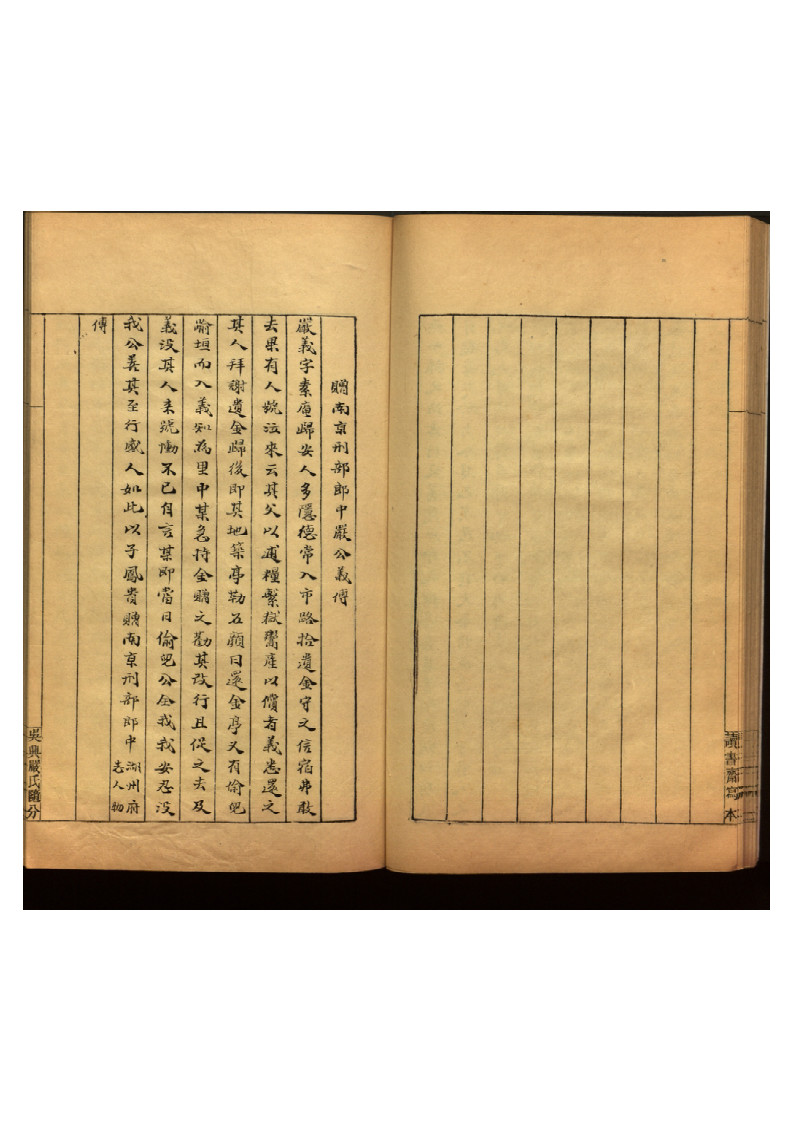 讀書齋寫本
贈南京刑部郎中嚴公義傳
嚴義字素庵歸安人多隱德常入市路拾遺金守之信宿弗敢
去果有人號泣來云其父以逋糧繫獄鬻產以償者義悉還之
其人拜謝遺金歸後即其地築亭勒石顏曰還金亭又有偷兒
踰垣而入義知為里中某名持金贈之勸其改行且促之去及
義没其人来號慟不已自言某即當日偷兒公全我我安忍没
我公善其至行感人如此以子鳳貴贈南京刑部郎中湖州府志人物
傳
吳興嚴氏隨分